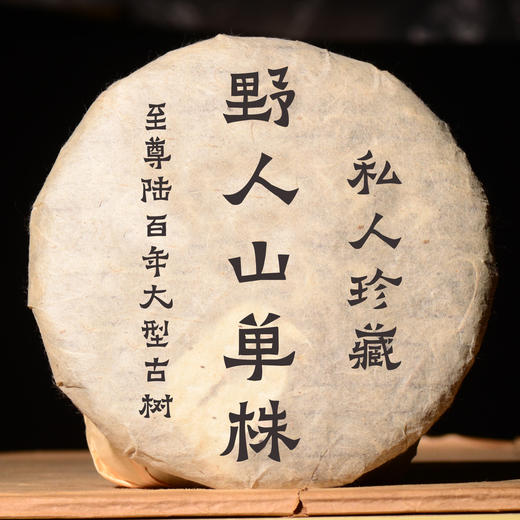 私人珍藏
野人山单株
至尊陆百年大型古树